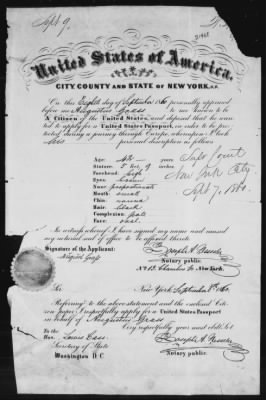 Sept 9
21468
United States of America,
CITY COUNTY AND STATE OF NEW YORK, S.S.
On this Eighth day of September 1860 personally appeared
before me Augustus Grass to me known to be
A Citizen of the United States, and deposed that he wanted
to apply for a United States Passport, in order to be protected
during a journey through Europe, whereupon I took
his personal description as follows
Age: 42 years
Stature: 5 feet, 9
Forehead: high
Eyes: 
Nose: proportionate
Mouth: small
Chin: round
Hair: black
Complexion: pale
Face: oval
Supr Court
New York City
Sept 7, 1860
In witness whereof I have signed my name and caused
my notarial seal of office to be affixed thereto
Signature of the Applicant:
Joseph A.
Notary public.
No 13 Chambers St. New York.
New York September 8th 1860
Sir
Referring to the above statement and the enclosed Citizen
paper I respectfully apply for a United States Passport
in behalf of Augustus Grass
Very respectfully your most obdt. Svt.
To the
Hon. Lewis Cass
Secretary of State
Washington D.C.
Joseph A.
Notary public.